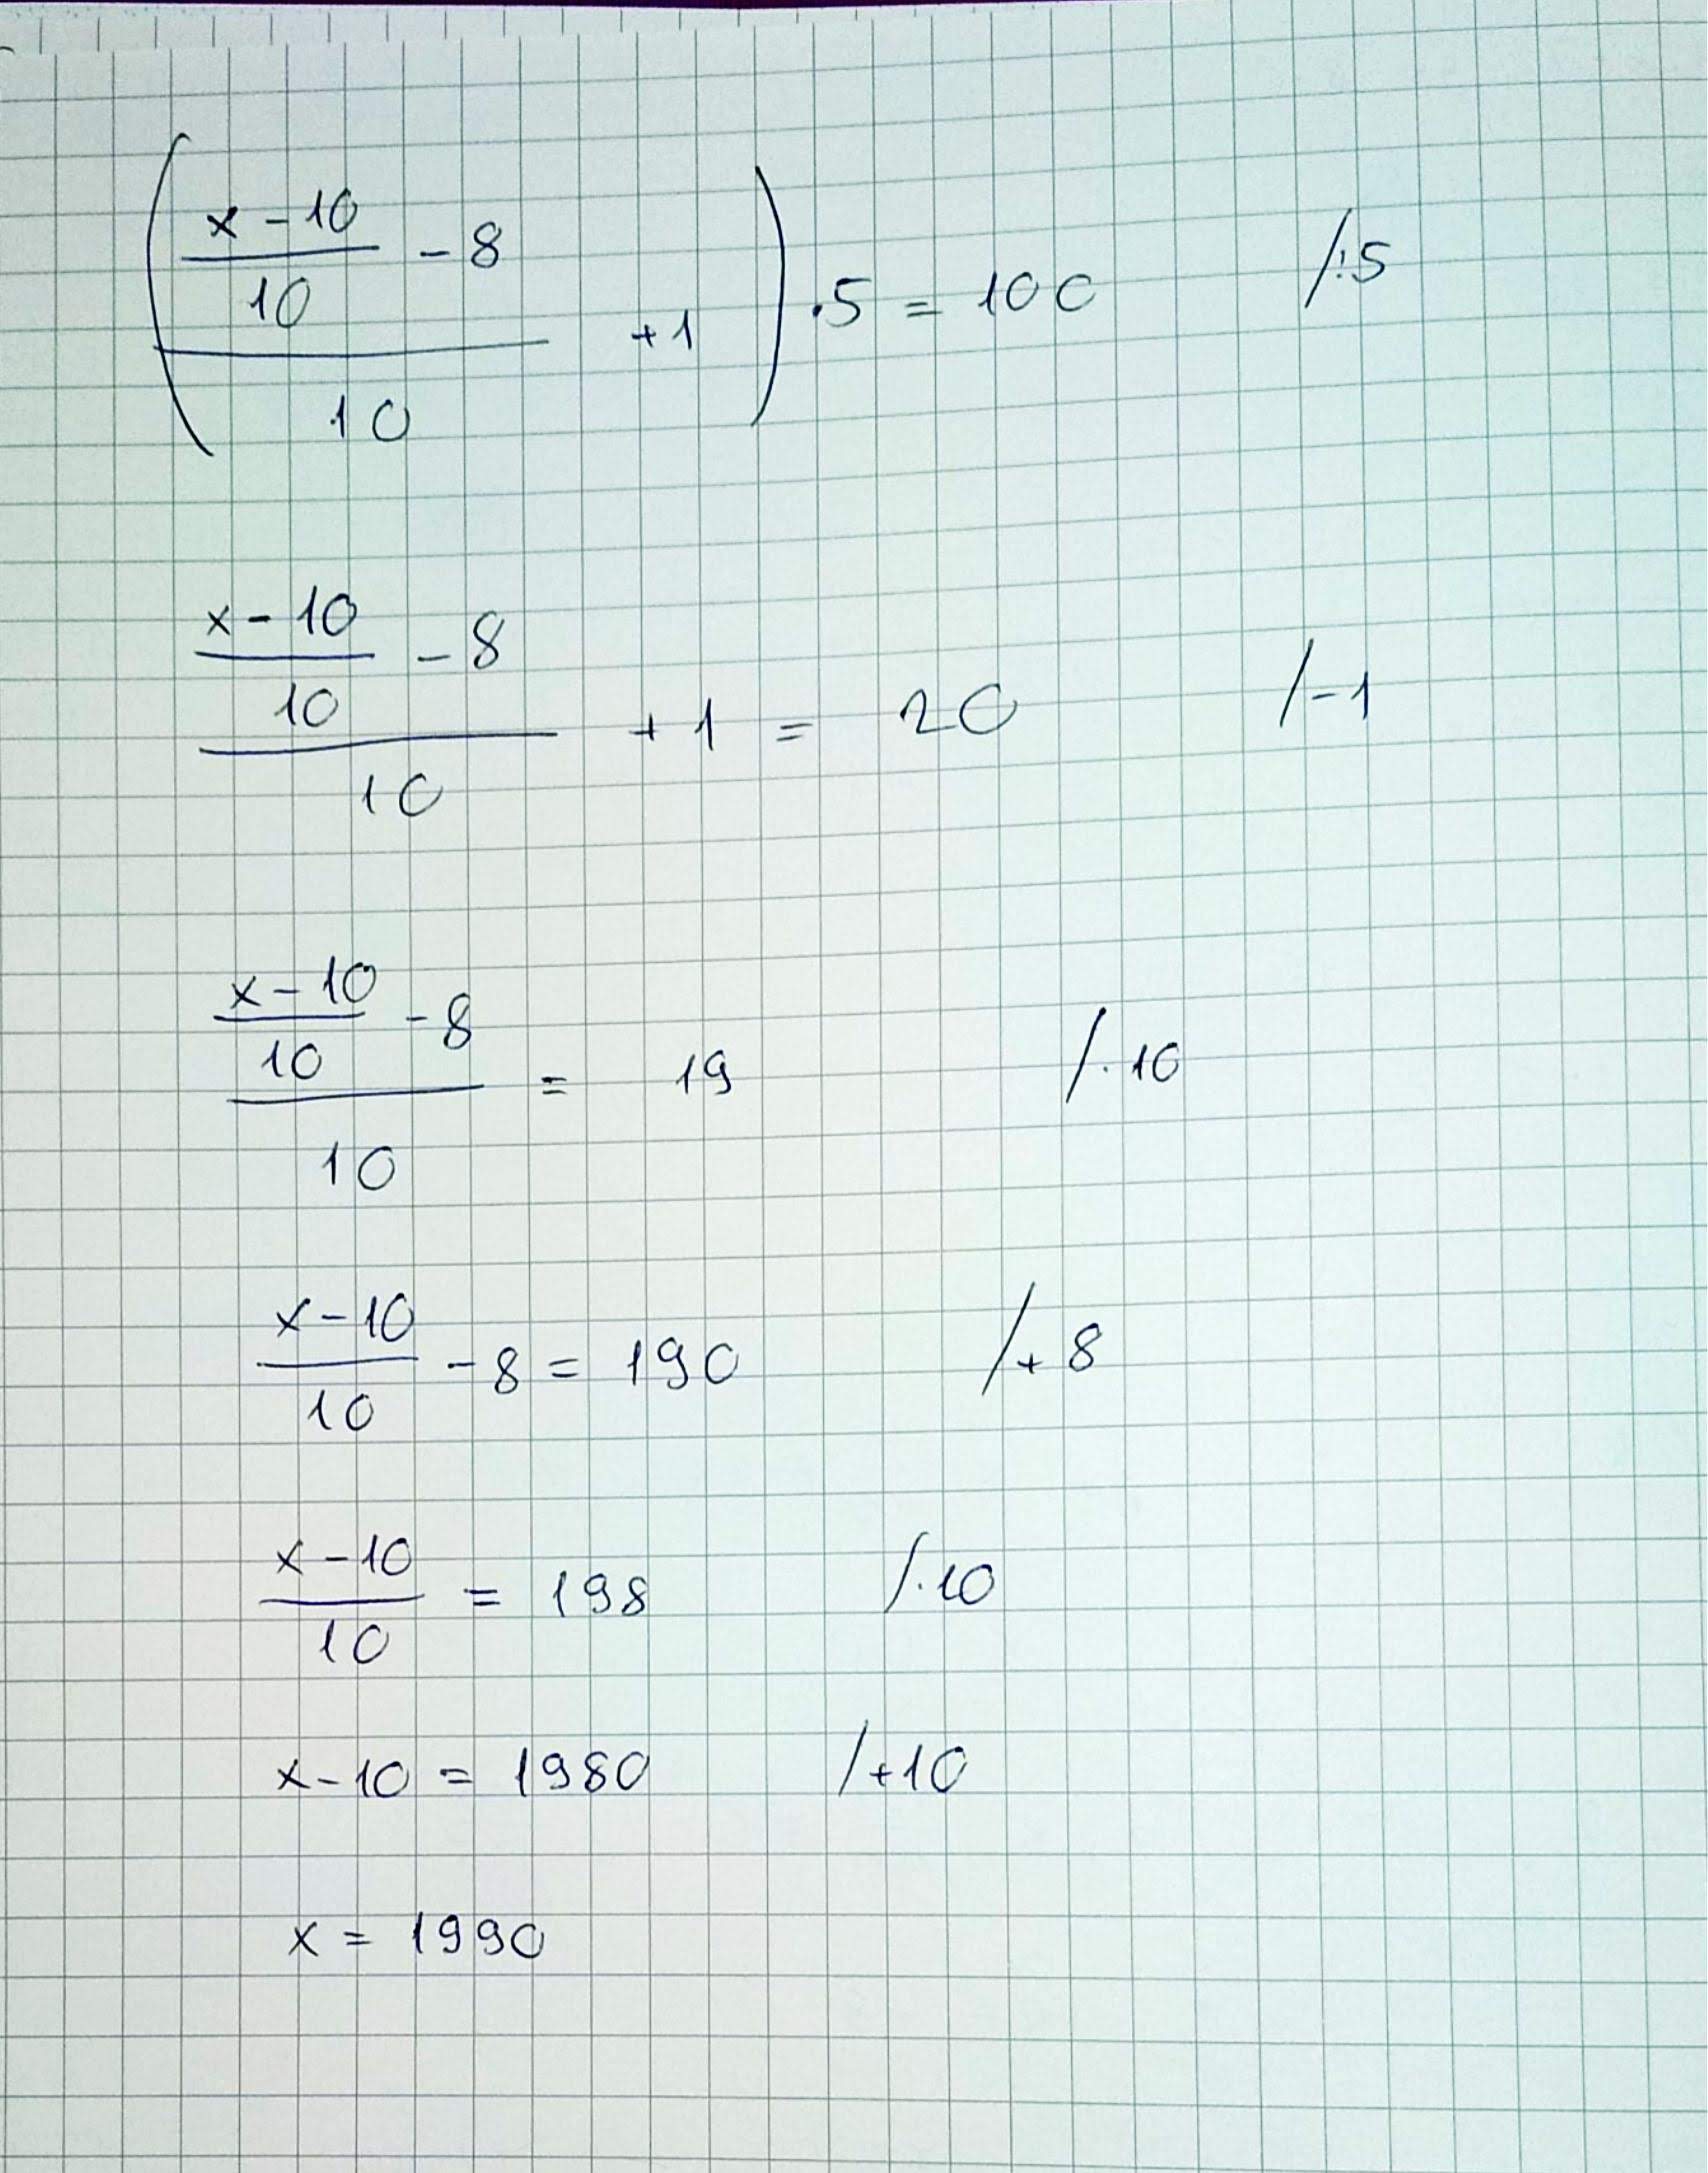 (((x-10)/10 - 8)/10 + 1) · 5 = 100 /:5
((x-10)/10 - 8)/10 + 1 = 20 /-1
((x-10)/10 - 8)/10 = 19 /·10
(x-10)/10 - 8 = 190 /+8
(x-10)/10 = 198 /·10
x-10 = 1980 /+10
x = 1990